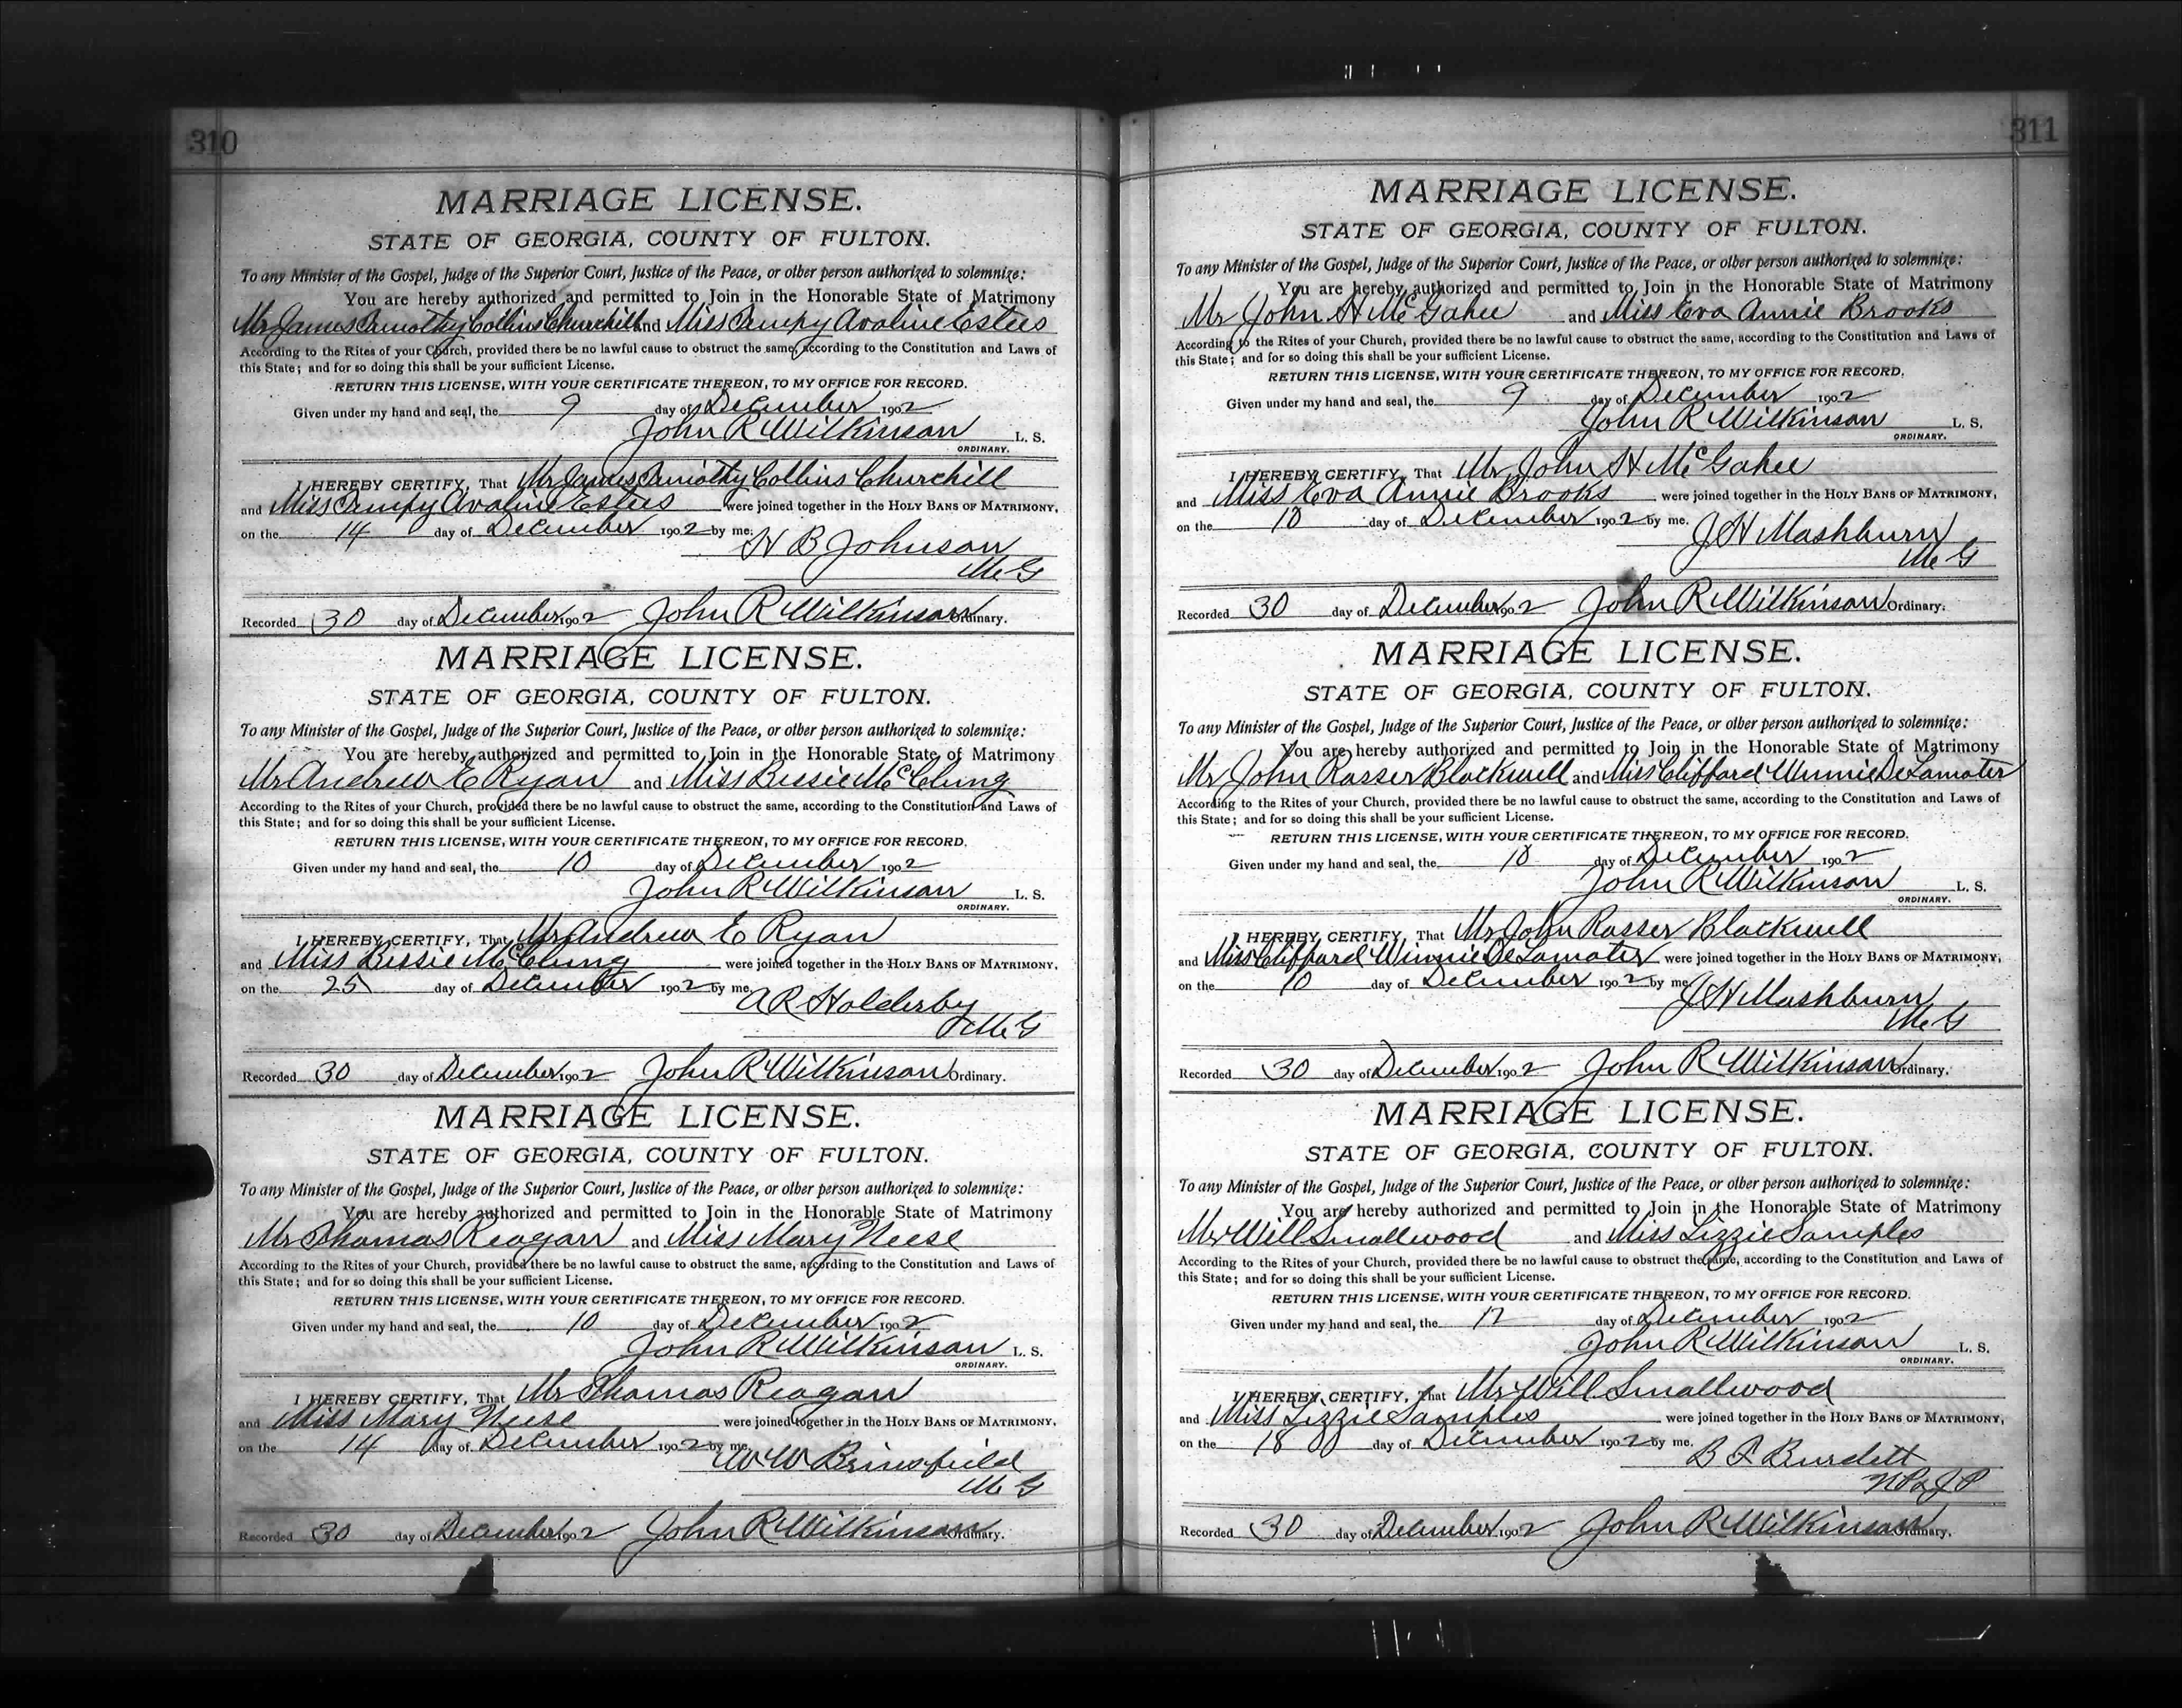 310
MARRIAGE LICENSE.
STATE OF GEORGIA, COUNTY OF FULTON.
To any Minister of the Gospel, Judge of the Superior Court, Justice of the Peace, or other person authorized to solemnize:
You are hereby authorized and permitted to Join in the Honorable State of Matrimony
Mr James Timothy Collins Churchill and Miss Tempy Avaline Estes
According to the Rites of your Church, provided there be no lawful cause to obstruct the same, according to the Constitution and Laws of
this State; and for so doing this shall be your sufficient License.
RETURN THIS LICENSE, WITH YOUR CERTIFICATE THEREON, TO MY OFFICE FOR RECORD.
Given under my hand and seal, the 9 day of December 1902
John R Wilkinson L. S.
ORDINARY.
I HEREBY CERTIFY, That Mr James Timothy Collins Churchill
and Miss Tempy Avaline Estes were joined together in the HOLY BANS OF MATRIMONY,
on the 14 day of December 1902 by me.
H B Johnson
M G
Recorded 30 day of December 1902 John R Wilkinson Ordinary.
MARRIAGE LICENSE.
STATE OF GEORGIA, COUNTY OF FULTON.
To any Minister of the Gospel, Judge of the Superior Court, Justice of the Peace, or other person authorized to solemnize:
You are hereby authorized and permitted to Join in the Honorable State of Matrimony
Mr Andrew E Ryan and Miss Bessie McClung
According to the Rites of your Church, provided there be no lawful cause to obstruct the same, according to the Constitution and Laws of
this State; and for so doing this shall be your sufficient License.
RETURN THIS LICENSE, WITH YOUR CERTIFICATE THEREON, TO MY OFFICE FOR RECORD.
Given under my hand and seal, the 10 day of December 1902
John R Wilkinson L. S.
ORDINARY.
I HEREBY CERTIFY, That Mr Andrew E Ryan
and Miss Bessie McClung were joined together in the HOLY BANS OF MATRIMONY,
on the 25 day of December 1902 by me.
A R Holderby
M G
Recorded 30 day of December 1902 John R Wilkinson Ordinary.
MARRIAGE LICENSE.
STATE OF GEORGIA, COUNTY OF FULTON.
To any Minister of the Gospel, Judge of the Superior Court, Justice of the Peace, or other person authorized to solemnize:
You are hereby authorized and permitted to Join in the Honorable State of Matrimony
Mr Thomas Reagan and Miss Mary Neese
According to the Rites of your Church, provided there be no lawful cause to obstruct the same, according to the Constitution and Laws of
this State; and for so doing this shall be your sufficient License.
RETURN THIS LICENSE, WITH YOUR CERTIFICATE THEREON, TO MY OFFICE FOR RECORD.
Given under my hand and seal, the 10 day of December 1902
John R Wilkinson L. S.
ORDINARY.
I HEREBY CERTIFY, That Mr Thomas Reagan
and Miss Mary Neese were joined together in the HOLY BANS OF MATRIMONY,
on the 14 day of December 1902 by me.
W W Brinsfield
M G
Recorded 30 day of December 1902 John R Wilkinson Ordinary.
311
MARRIAGE LICENSE.
STATE OF GEORGIA, COUNTY OF FULTON.
To any Minister of the Gospel, Judge of the Superior Court, Justice of the Peace, or other person authorized to solemnize:
You are hereby authorized and permitted to Join in the Honorable State of Matrimony
Mr John H McGahee and Miss Eva Annie Brooks
According to the Rites of your Church, provided there be no lawful cause to obstruct the same, according to the Constitution and Laws of
this State; and for so doing this shall be your sufficient License.
RETURN THIS LICENSE, WITH YOUR CERTIFICATE THEREON, TO MY OFFICE FOR RECORD.
Given under my hand and seal, the 9 day of December 1902
John R Wilkinson L. S.
ORDINARY.
I HEREBY CERTIFY, That Mr John H McGahee
and Miss Eva Annie Brooks were joined together in the HOLY BANS OF MATRIMONY,
on the 10 day of December 1902 by me.
J H Mashburn
M G
Recorded 30 day of December 1902 John R Wilkinson Ordinary.
MARRIAGE LICENSE.
STATE OF GEORGIA, COUNTY OF FULTON.
To any Minister of the Gospel, Judge of the Superior Court, Justice of the Peace, or other person authorized to solemnize:
You are hereby authorized and permitted to Join in the Honorable State of Matrimony
Mr John Rasser Blackwell and Miss Clifford Winnie DeLamater
According to the Rites of your Church, provided there be no lawful cause to obstruct the same, according to the Constitution and Laws of
this State; and for so doing this shall be your sufficient License.
RETURN THIS LICENSE, WITH YOUR CERTIFICATE THEREON, TO MY OFFICE FOR RECORD.
Given under my hand and seal, the 10 day of December 1902
John R Wilkinson L. S.
ORDINARY.
I HEREBY CERTIFY, That Mr John Rasser Blackwell
and Miss Clifford Winnie DeLamater were joined together in the HOLY BANS OF MATRIMONY,
on the 10 day of December 1902 by me.
J H Mashburn
M G
Recorded 30 day of December 1902 John R Wilkinson Ordinary.
MARRIAGE LICENSE.
STATE OF GEORGIA, COUNTY OF FULTON.
To any Minister of the Gospel, Judge of the Superior Court, Justice of the Peace, or other person authorized to solemnize:
You are hereby authorized and permitted to Join in the Honorable State of Matrimony
Mr Will Smallwood and Miss Lizzie Samples
According to the Rites of your Church, provided there be no lawful cause to obstruct the same, according to the Constitution and Laws of
this State; and for so doing this shall be your sufficient License.
RETURN THIS LICENSE, WITH YOUR CERTIFICATE THEREON, TO MY OFFICE FOR RECORD.
Given under my hand and seal, the 17 day of December 1902
John R Wilkinson L. S.
ORDINARY.
I HEREBY CERTIFY, That Mr Will Smallwood
and Miss Lizzie Samples were joined together in the HOLY BANS OF MATRIMONY,
on the 18 day of December 1902 by me.
B F Burdett
N P & J P
Recorded 30 day of December 1902 John R Wilkinson Ordinary.